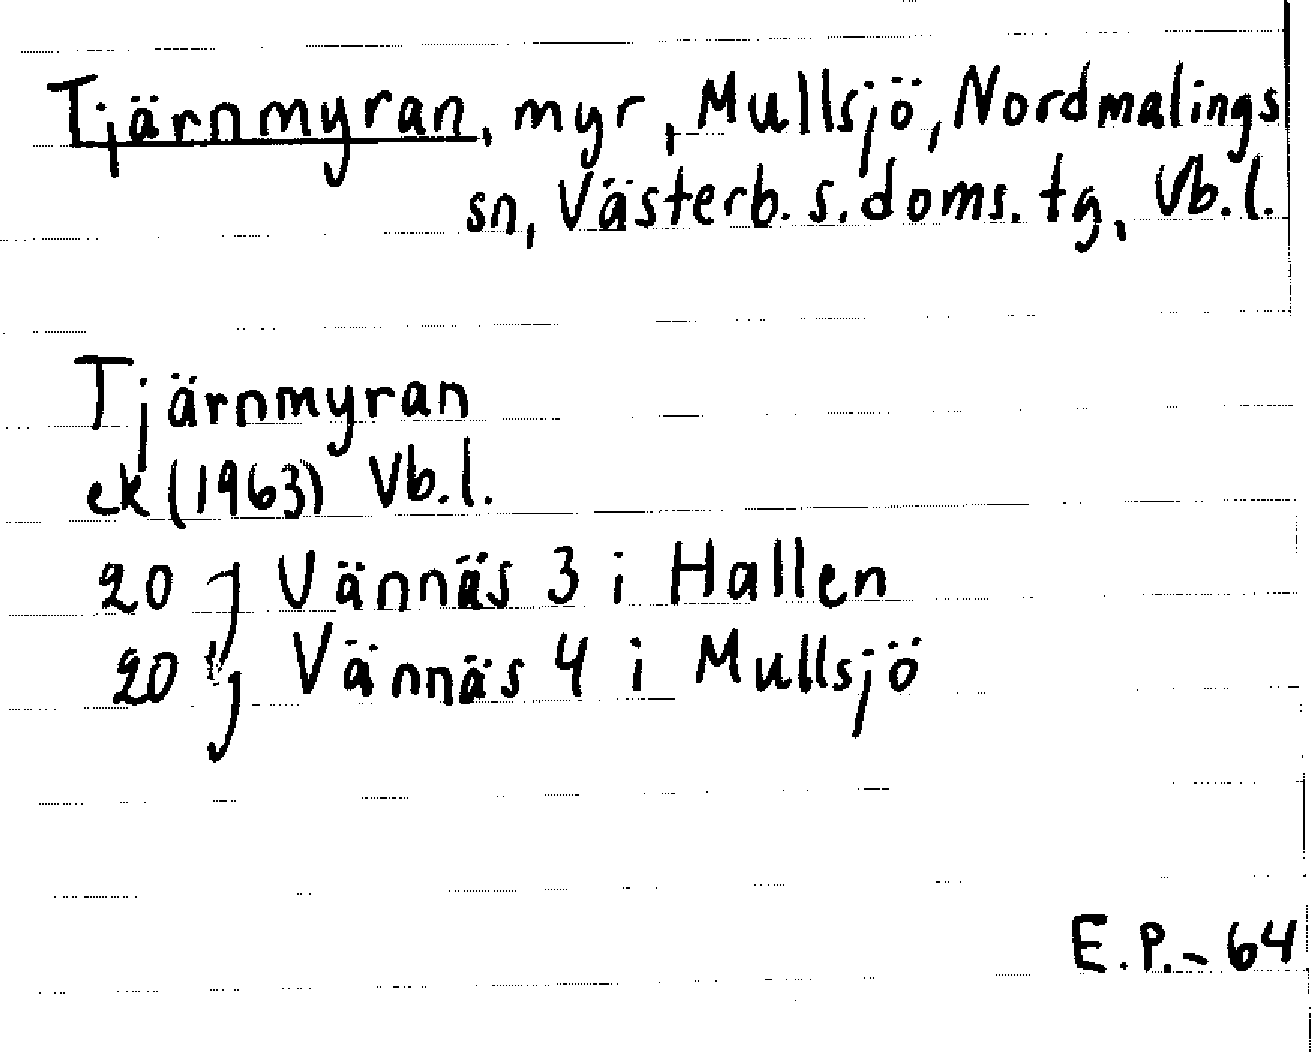 Tjärnmyran, myr, Mullsjö, Nordmalings
sn, Västerb. s. doms. tg, Vb. l.
Tjärnmyran
ek (1963) Vb. l.
20 j Vännäs 3 i Hallen
20 j Vännäs 4 i Mullsjö
E.P.-64